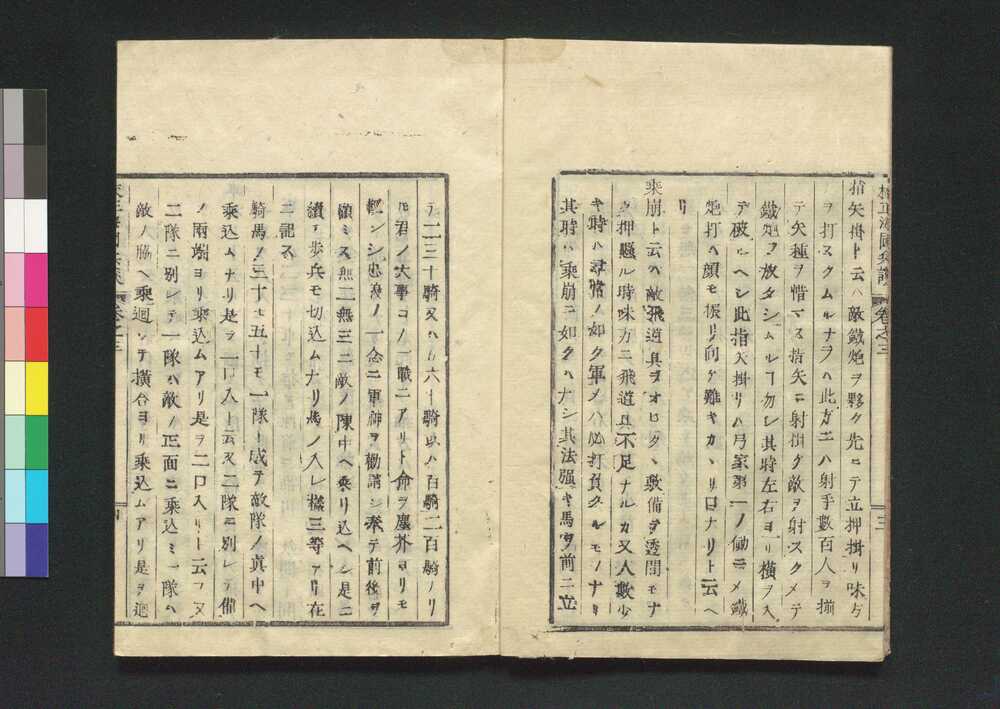 校正海國兵談 卷之三 三
指矢掛ト云ハ敵鐵炮ヲ夥ク先ニテ立押掛リ味方
ヲ打スクムルナラハ此方ニハ射手數百人ヲ揃
テ矢種ヲ惜マス指矢ニ射掛ケ敵ヲ射スクメテ
鐵炮ヲ放タシムルヿ勿レ其時左右ヨリ横ヲ入
テ破ルヘシ此指矢掛リハ弓家第一ノ働ニメ鐵
炮打ヘ顔モ振リ向ケ難キカヽリ口ナリト云ヘ
リ
乘崩ト云ハ敵飛道具ヲオロタヽ敷備ヲ透間モナ
ク押懸ル時味方ニ飛道具不足ナルカ又人數少
キ時ハ尋常ノ如ク軍メハ必打負クルモノナリ
其時ハ乘崩ニ如クハナシ其法强キ馬ヲ前ニ立
テ二三十騎又ハ五六十騎或ハ百騎二百騎ノリ
モ君ノ大事コノ一職ニアリト命ヲ塵芥ヨリモ
輕ンシ忠義ノ一念ニ軍神ヲ勸請シ奉テ前後ヲ
顧ミス無二無三ニ敵ノ陳中ヘ乘リ込ヘシ是ニ
續テ歩兵モ切込ムナリ馬ノ入レ樣三等アリ在
ニ記ス
騎馬ノ三十モ五十モ一隊ト成テ敵隊ノ眞中ヘ
乘込ムナリ是ヲ一口入ト云又二隊ニ別レテ備
ノ兩端ヨリ乘込ムアリ是ヲ二口入リト云フ又
二隊ニ別レテ一隊ハ敵ノ正面ニ乘込ミ一隊ハ
敵ノ脇ヘ乘廻シテ横合ヨリ乘込ムアリ是ヲ廻